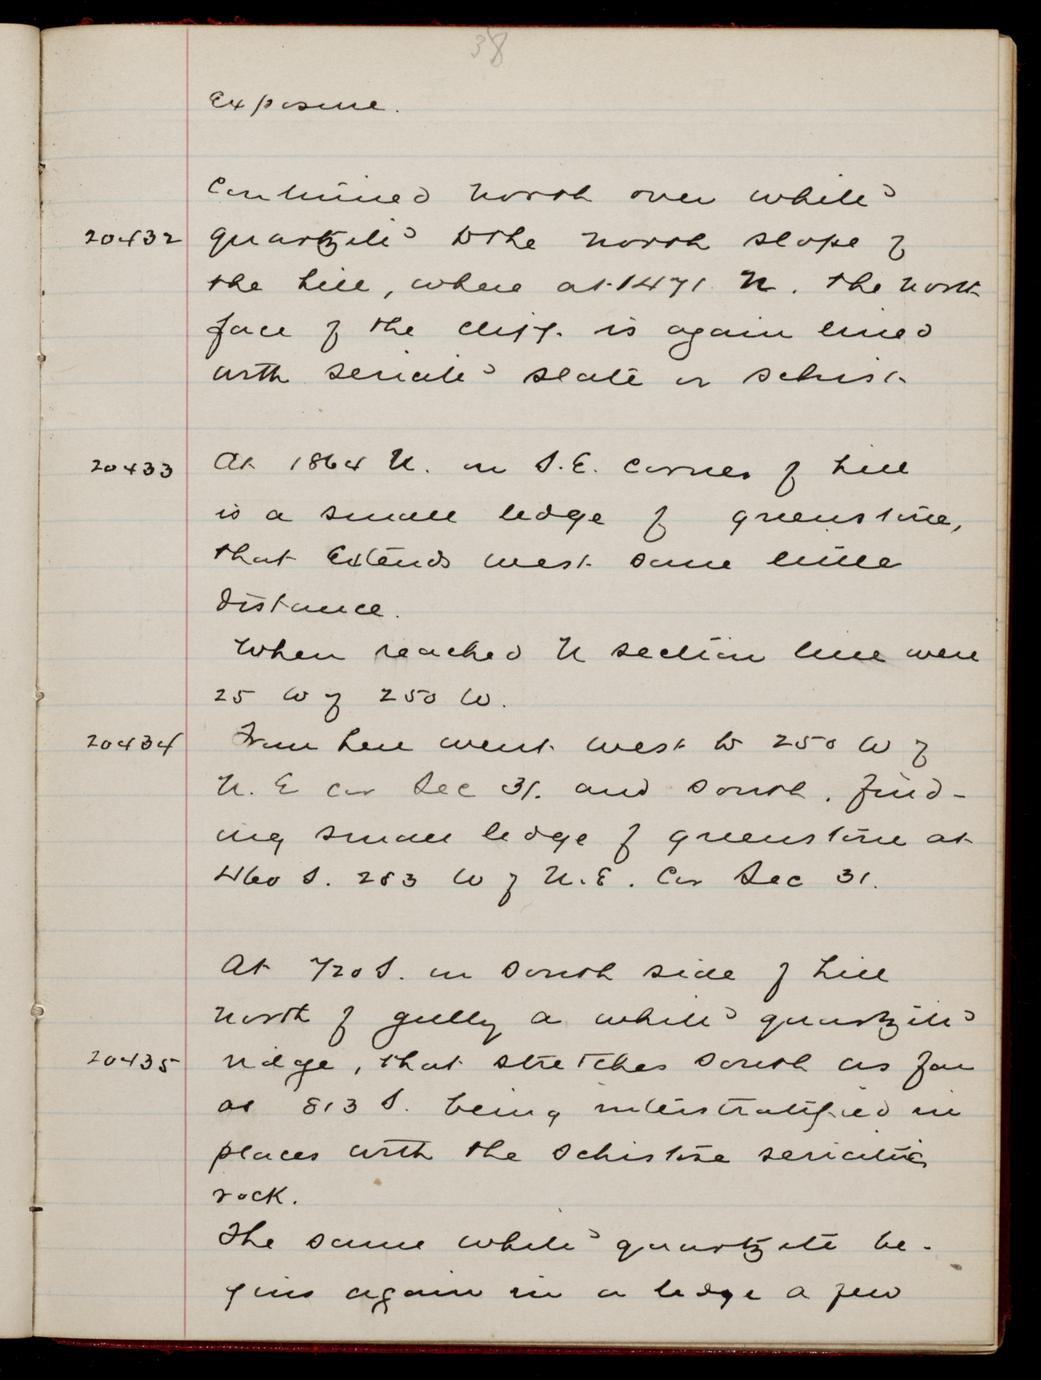 38
exposure.
Continued north over white
20432 quartzite to the north slope of
the hill, where at 1471 N. the north
face of the cliff is again lined
with sericite slate or schist
20433 At 1864 N. on S.E. corner of hill
is a small ledge of greenstone,
that extends west some little
distance.
When reached N section line were
25 W of 250 W.
20434 From here went west to 250 W of
N. E Cor Sec 31. and south, find-
ing small ledge of greenstone at
460 S. 283 W of N.E. Cor Sec 31.
At 720 S. on south side of hill
north of gully a white quartzite
20435 ridge, that stretches south as far
as 813 S. being interstratified in
places with the schistose sericitic
rock.
The same white quartzite be-
gins again in a ledge a few